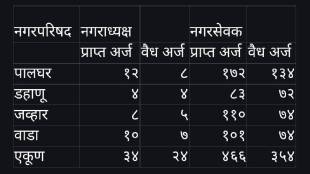 नगरपरिषद नगराध्यक्ष नगरसेवक
प्राप्त अर्ज वैध अर्ज प्राप्त अर्ज वैध अर्ज
पालघर १२ ८ १७२ १३४
डहाणू ४ ४ ८३ ७२
जव्हार ८ ५ ११० ७४
वाडा १० ७ १०१ ७४
एकूण ३४ २४ ४६६ ३५४